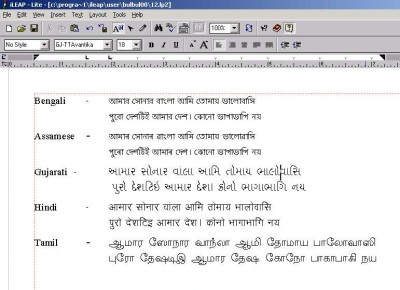 iLEAP - Lite - [c:\progra~1\ileap\user\bulbul00\12.lp2]
File Edit View Insert Format Tools Window Help
100%
No Style GJ-TTAvantika 18 B I U
Bengali - আমার সোনার বাংলা আমি তোমায় ভালোবাসি
পুরো দেশটিই আমার দেশ। কোনো ভাগাভাগি নয়
Assamese - আমাৰ সোনাৰ বাংলা আমি তোমায় ভালোবাসি
পুৰো দেশটিই আমাৰ দেশ। কোনো ভাগাভাগি নয়
Gujarati - આમાર સોનાર વાંલા આમિ તોમાય ભાલોવાસિ
પુરો દેશટિઇ આમાર દેશ। કોનો ભાગાભાગિ નય
Hindi - आमार सोनार वांला आमि तोमाय भालोवासि
पुरो देशटिइ आमार देश। कोनो भागाभागि नय
Tamil - ஆமார ஸோநார வாந்லா ஆமி தோமாய பாலோவாஸி
புரோ தேஷடிஇ ஆமார தேஷ கோநோ பாகாபாகி நய